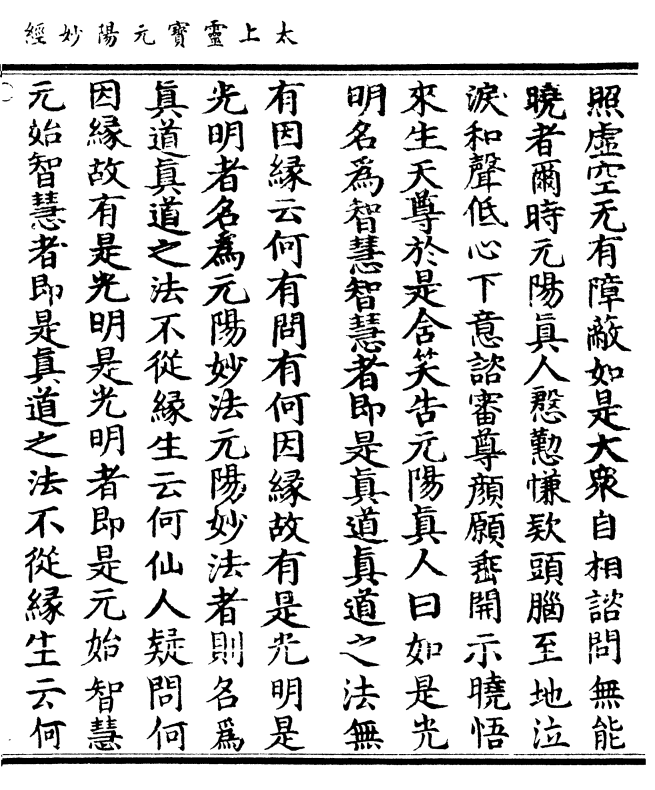 太上靈寶元陽妙經
照虛空无有障蔽如是大衆自相諮問無能
曉者爾時元陽眞人慇懃慊欵頭腦至地泣
淚和聲低心下意諮審尊顔願垂開示曉悟
來生天尊於是含笑告元陽眞人曰如是光
明名爲智慧智慧者即是眞道眞道之法無
有因緣云何有問有何因緣故有是光明是
光明者名爲元陽妙法元陽妙法者則名爲
眞道眞道之法不從緣生云何仙人疑問何
因緣故有是光明是光明者即是元始智慧
元始智慧者即是眞道之法不從緣生云何